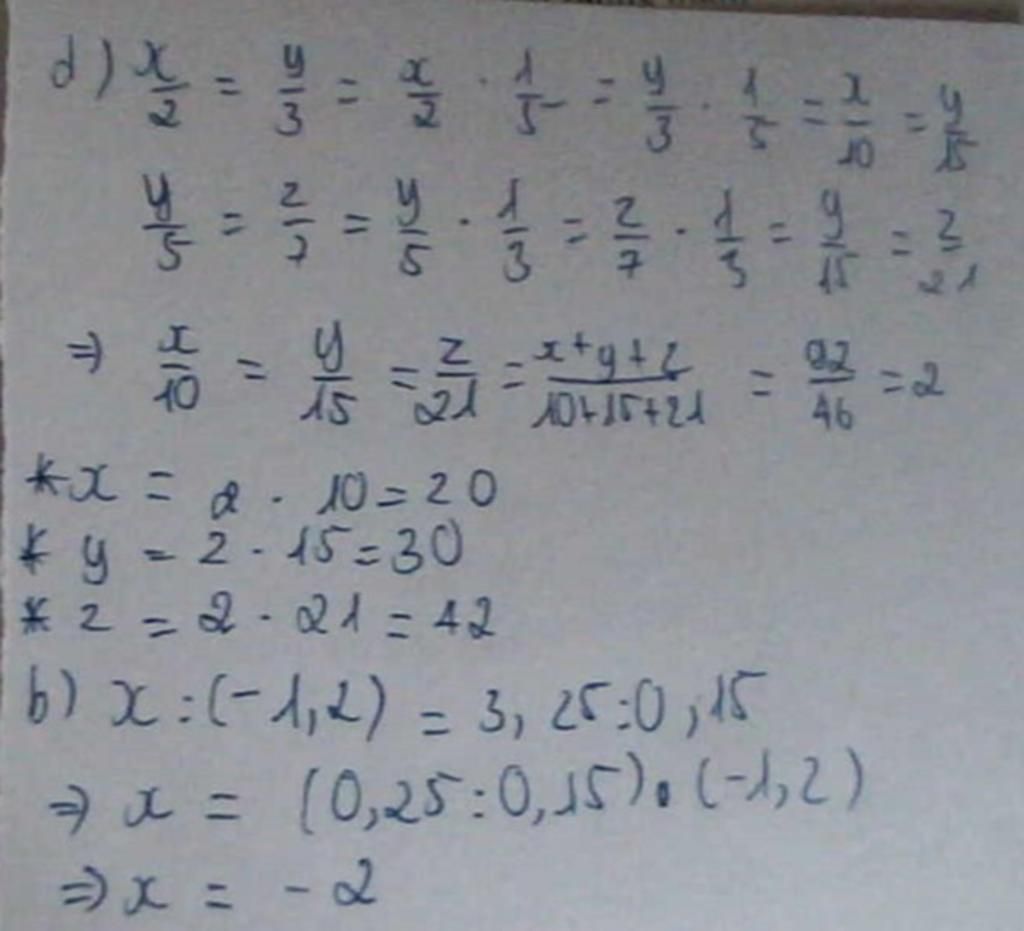 d) x/2 = y/3 = x/2 · 1/5 = y/3 · 1/5 = x/10 = y/15
y/5 = z/7 = y/5 · 1/3 = z/7 · 1/3 = y/15 = z/21
=> x/10 = y/15 = z/21 = x+y+z/10+15+21 = 92/46 = 2
* x = 2 · 10 = 20
* y = 2 · 15 = 30
* z = 2 · 21 = 42
b) x : (-1,2) = 3,25:0,15
=> x = (0,25:0,15) . (-1,2)
=> x = -2